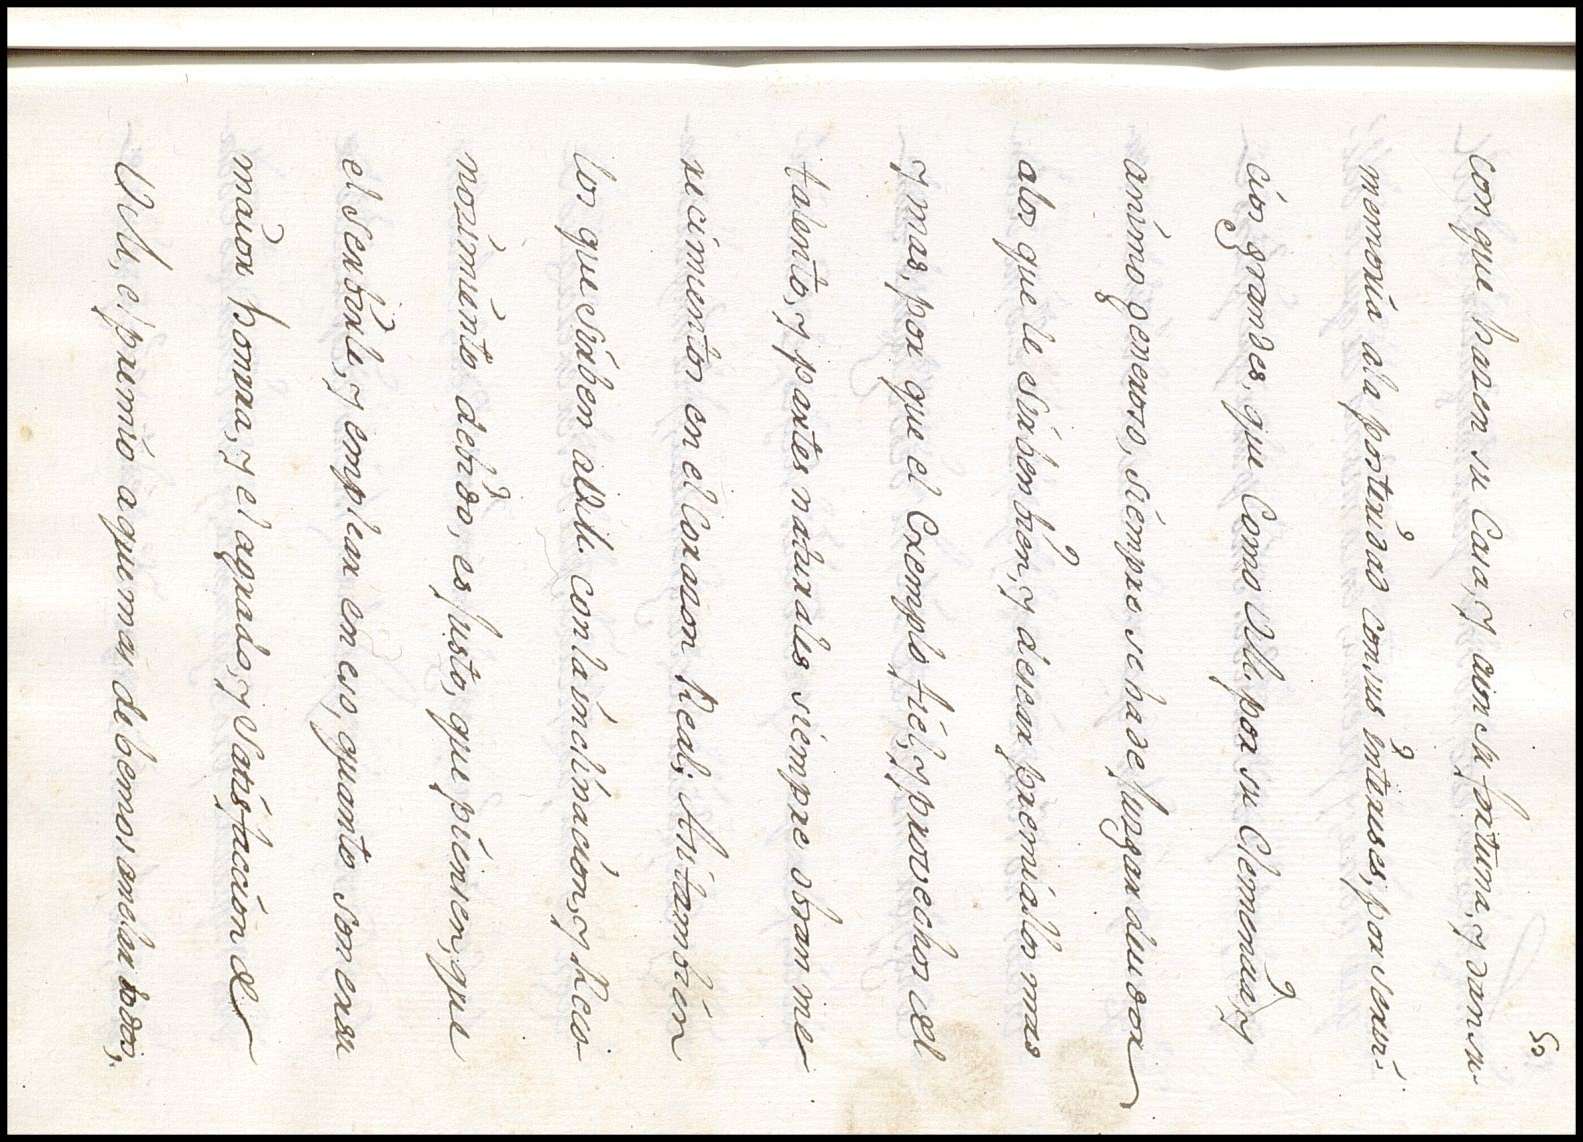 55
con que hazen su Casa, y acion su fortuna, y dan su
memoria ala posteridad con sus interises, por serui-
cios grandes, que Como VM. por su Clemencia, y
animo generoso, siempre se ha de juzgar deudor
alos que le sirben bien, y desear premialos mas
y mas, por que el Exemplo fiel, y prouechos del
talento, y partes naturales siempre obran me
recimientos en el Corazon Real; Assi tambien
los que sirben a VM. con la inclinacion, y Reco-
nosimiento debido, es justo, que piensen, que
el Serbirle, y emplear en eso, quanto son era su
maior honrra, y el agrado, y Satisfaccion de
VM, el premio a que mas debemos anelar todos,